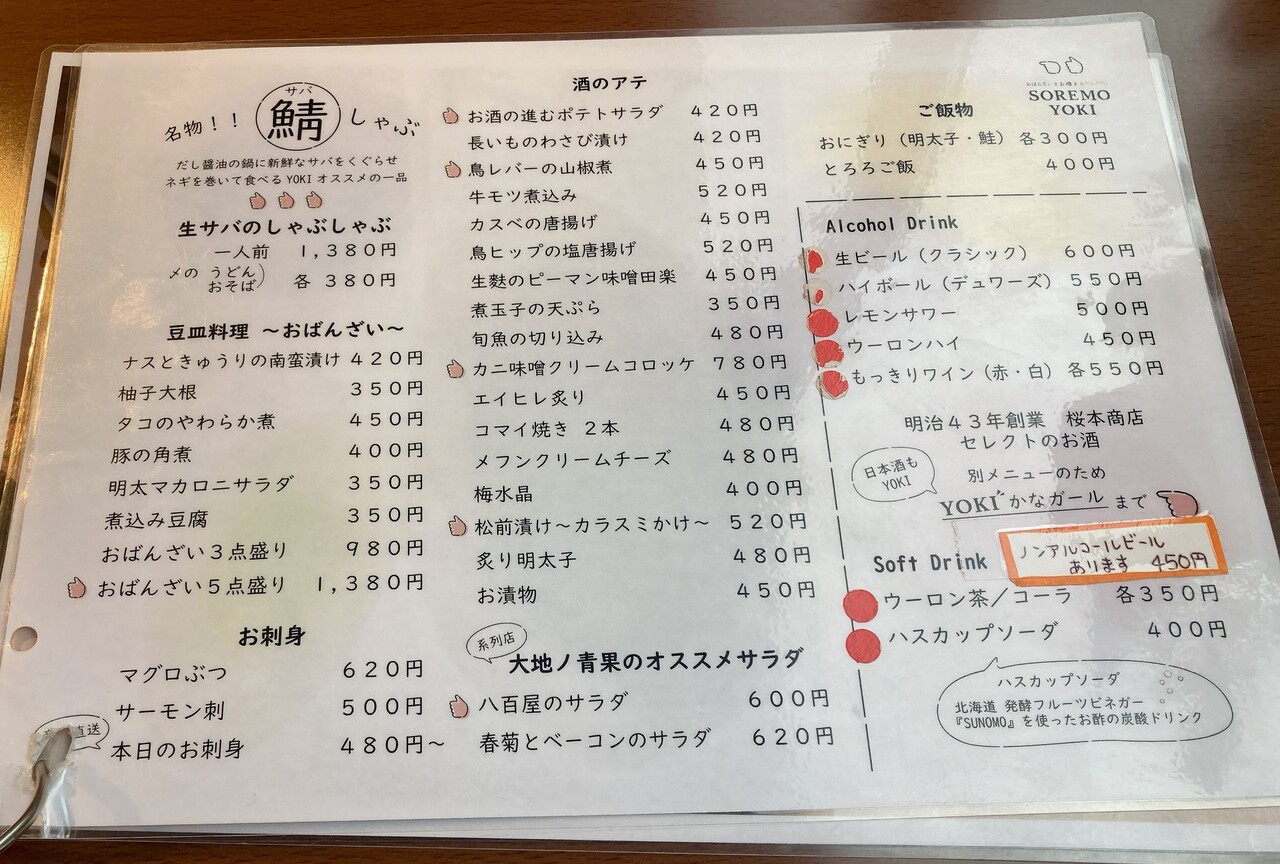 名物！！
サバ
鯖
しゃぶ
だし醤油の鍋に新鮮なサバをくぐらせ
ネギを巻いて食べるYOKIオススメの一品
生サバのしゃぶしゃぶ
一人前 1,380円
〆の うどん おそば 各 380円
豆皿料理 〜おばんざい〜
ナスときゅうりの南蛮漬け 420円
柚子大根 350円
タコのやわらか煮 450円
豚の角煮 400円
明太マカロニサラダ 350円
煮込み豆腐 350円
おばんざい３点盛り 980円
おばんざい５点盛り 1,380円
お刺身
マグロぶつ 620円
サーモン刺 500円
直送
本日のお刺身 480円〜
酒のアテ
お酒の進むポテトサラダ 420円
長いものわさび漬け 420円
鳥レバーの山椒煮 450円
牛モツ煮込み 520円
カスベの唐揚げ 450円
鳥ヒップの塩唐揚げ 520円
生麩のピーマン味噌田楽 450円
煮玉子の天ぷら 350円
旬魚の切り込み 480円
カニ味噌クリームコロッケ 780円
エイヒレ炙り 450円
コマイ焼き ２本 480円
メフンクリームチーズ 480円
梅水晶 400円
松前漬け〜カラスミかけ〜 520円
炙り明太子 480円
お漬物 450円
系列店
大地ノ青果のオススメサラダ
八百屋のサラダ 600円
春菊とベーコンのサラダ 620円
SOREMO
YOKI
ご飯物
おにぎり（明太子・鮭） 各300円
とろろご飯 400円
Alcohol Drink
生ビール（クラシック） 600円
ハイボール（デュワーズ） 550円
レモンサワー 500円
ウーロンハイ 450円
もっきりワイン（赤・白） 各550円
明治４３年創業 桜本商店
セレクトのお酒
日本酒も
YOKI
別メニューのため
YOKI゛かなガール まで
ノンアルコールビール
あります 450円
Soft Drink
ウーロン茶／コーラ 各350円
ハスカップソーダ 400円
ハスカップソーダ
北海道 発酵フルーツビネガー
『SUNOMO』を使ったお酢の炭酸ドリンク